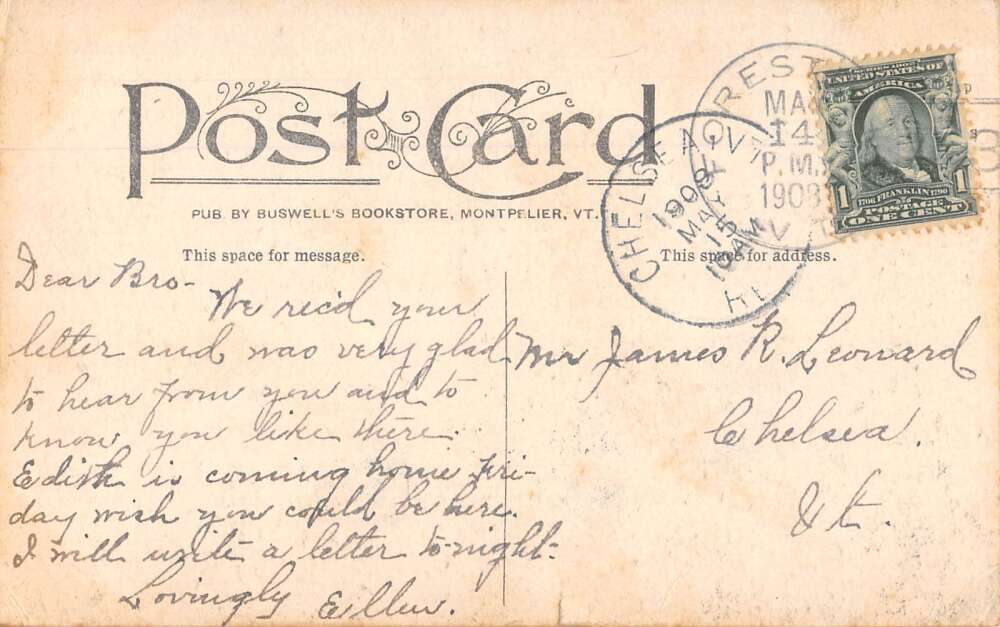 Post Card
PUB. BY BUSWELL'S BOOKSTORE, MONTPELIER, VT.
This space for message.
This space for address.
Dear Bro-
We rec'd your
letter and was very glad
to hear from you and to
know you like there.
Edith is coming home Fri-
day wish you could be here.
I will write a letter to-night.
Lovingly Ellen.
Mr James R. Leonard
Chelsea.
Vt.
CHELSEA VT.
1908
MAY 15
10 AM
REC'D
OREST
MA
14
P.M.
1908
UNITED STATES OF
AMERICA
1706 FRANKLIN 1790
POSTAGE
1 ONE CENT 1